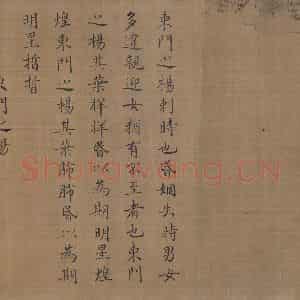 東門之楊刺時也昏姻失時男女
多違親迎女猶有不至者也東門
之楊其葉牂牂昏以為期明星煌
煌東門之楊其葉肺肺昏以為期
明星晢晢
東門之楊
Shufawang.CN